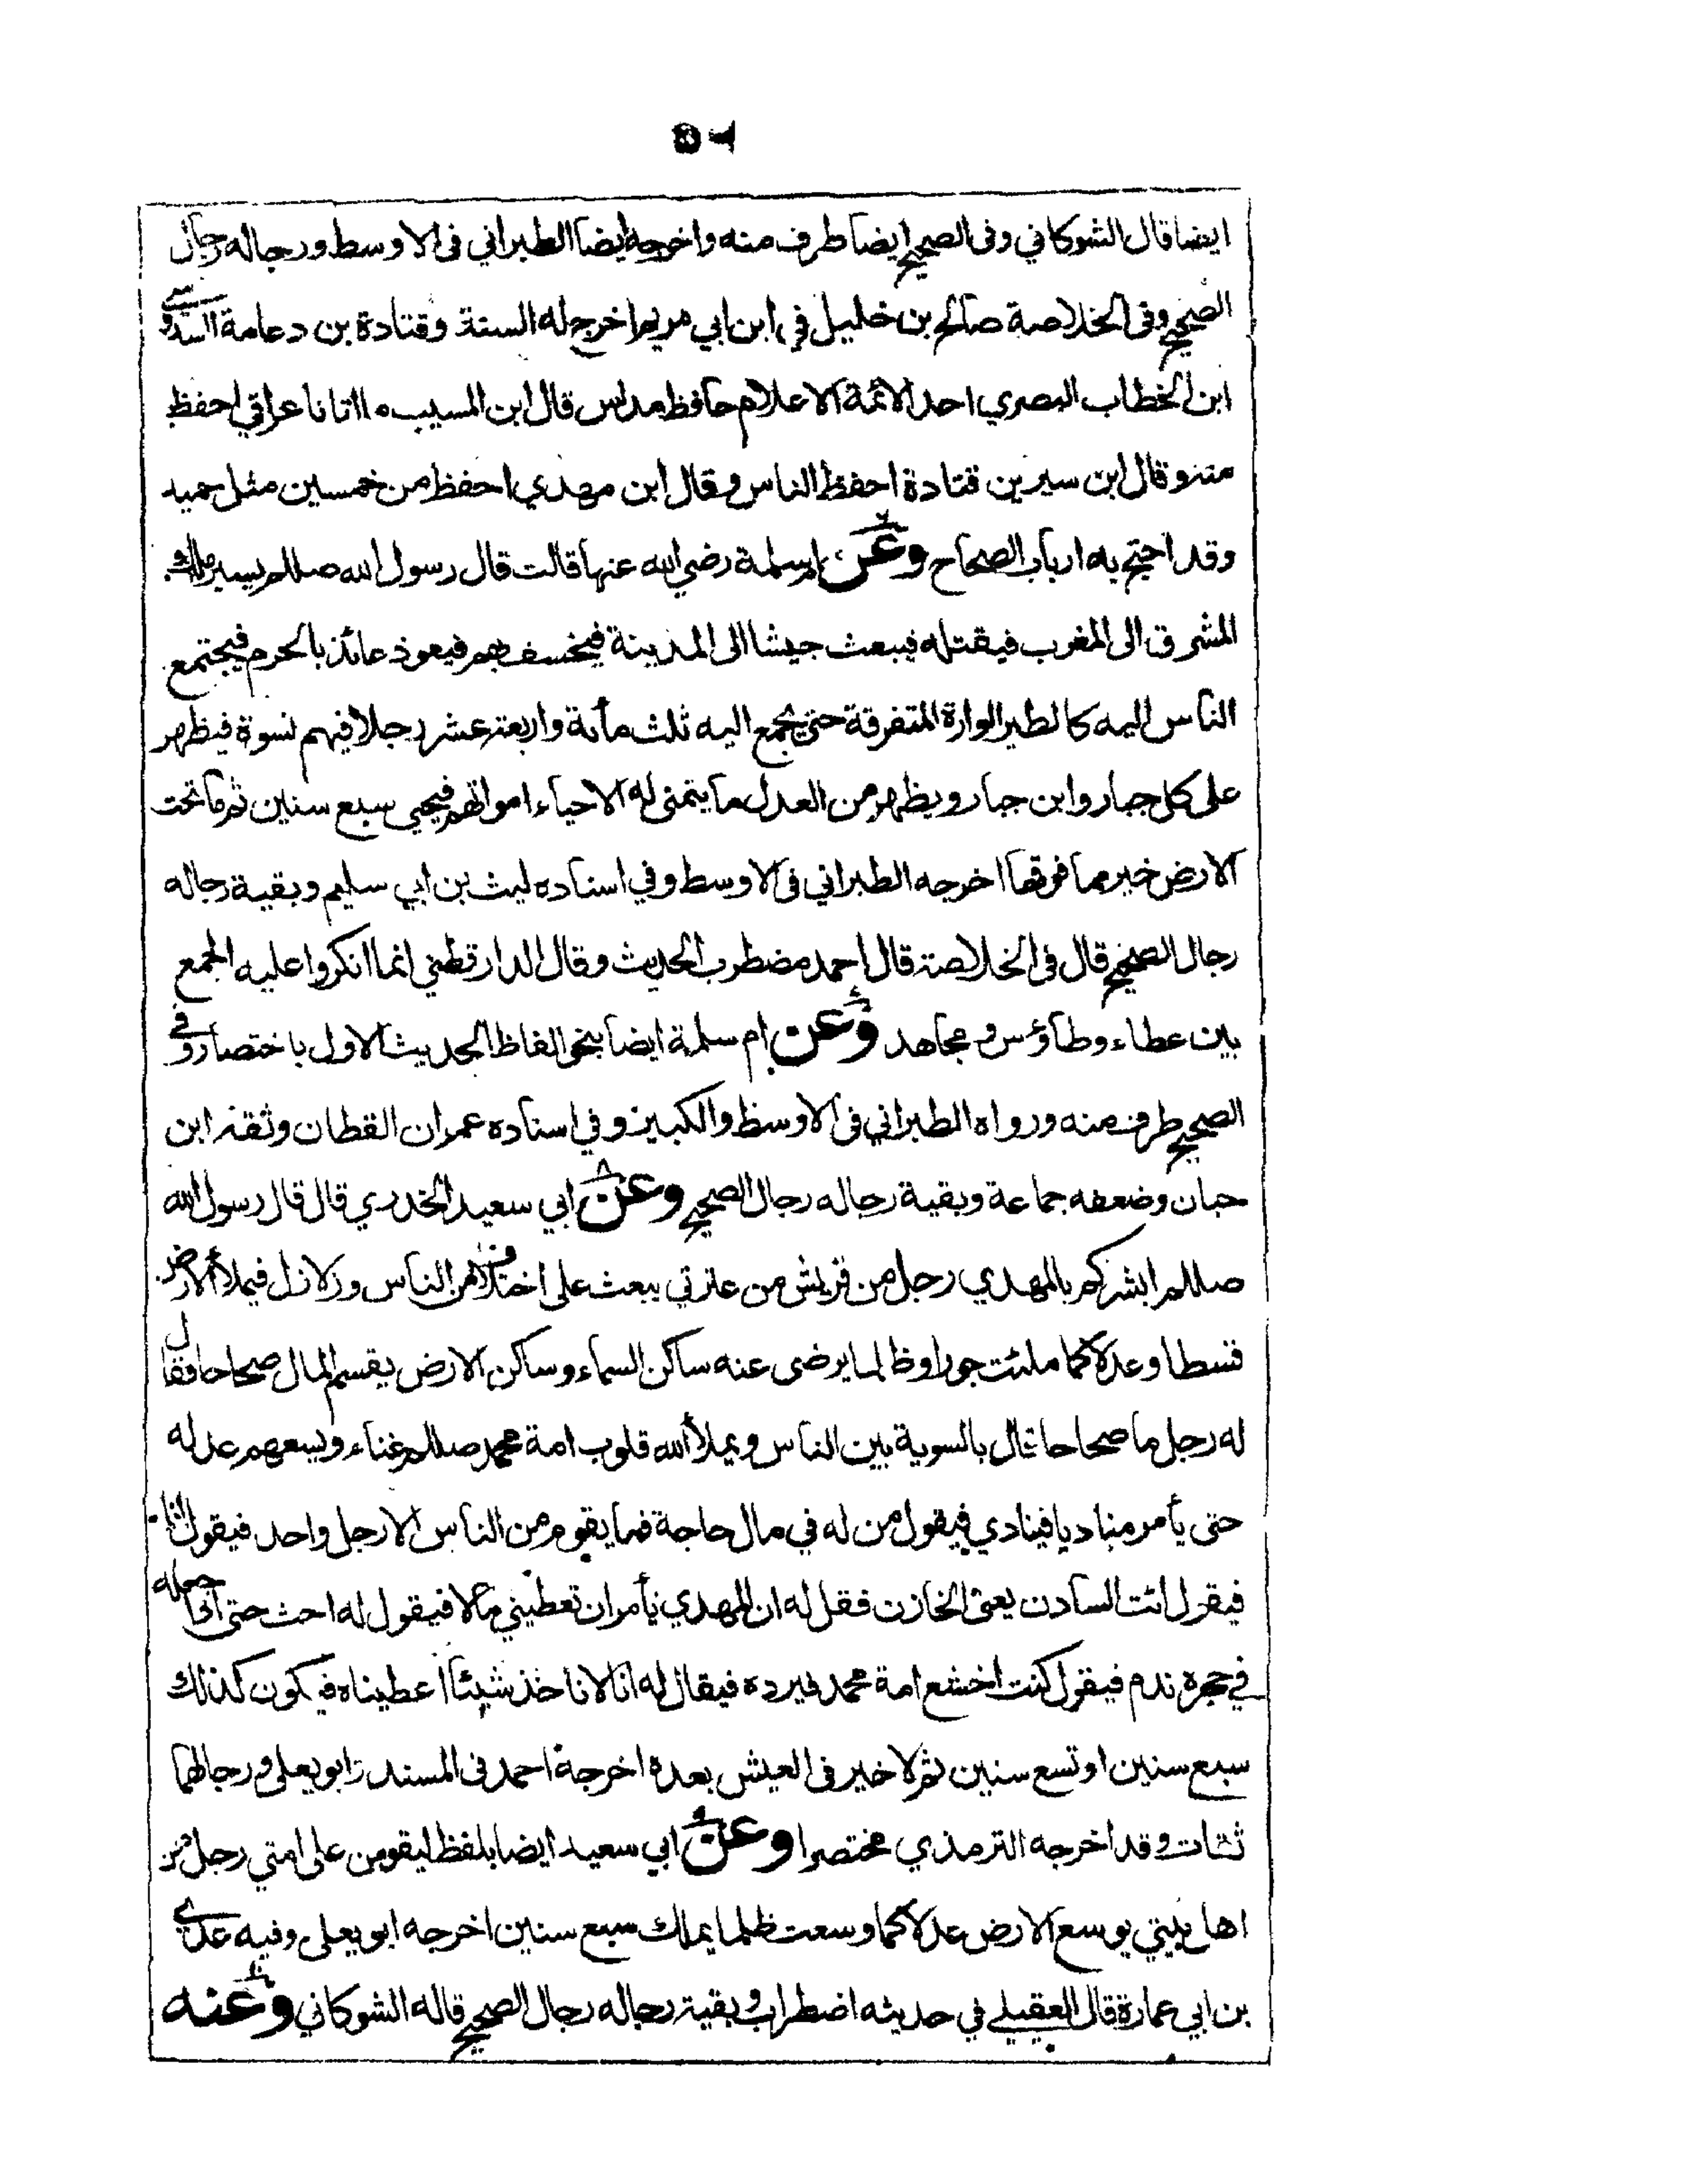 ايضا قال الشوكاني وفى الصحيح ايضا طرف منه واخرجه ايضا الطبراني فى الاوسط ورجاله رجال
الصحيح وفى الخلاصة صالح بن خليل في ابن ابي مريم اخرج له الستة وقتادة بن دعامة السدوسي
ابن الخطاب البصري احد الائمة الاعلام حافظ مدلس قال ابن المسيب ما اتانا عراقي احفظ
منه وقال ابن سيرين قتادة احفظ الناس وقال ابن مهدي احفظ من خمسين مثل حميد
وقد احتج به ارباب الصحاح وعن ام سلمة رضي الله عنها قالت قال رسول الله صللم يسير ملك
المشرق الى المغرب فيقتله فيبعث جيشا الى المدينة فيخسف بهم فيعوذ عائذ بالحرم فيجتمع
الناس اليه كالطير الواردة المتفرقة حتى يجمع اليه ثلث مأة واربعة عشر رجلا فيهم نسوة فيظهر
على كل جبار وابن جبار ويظهر من العدل ما يتمنى له الاحياء امواتهم فيحيى سبع سنين ثم ما تحت
الارض خير مما فوقها اخرجه الطبراني فى الاوسط وفي اسناده ليث بن ابي سليم وبقية رجاله
رجال الصحيح قال فى الخلاصة قال احمد مضطرب الحديث وقال الدارقطني انما انكروا عليه الجمع
بين عطاء وطاؤس ومجاهد وعن ام سلمة ايضا بنحو الفاظ الحديث الاول باختصار وفي
الصحيح طرف منه ورواه الطبراني فى الاوسط والكبير وفي اسناده عمران القطان وثقه ابن
حبان وضعفه جماعة وبقية رجاله رجال الصحيح وعن ابي سعيد الخدري قال قال رسول الله
صللم ابشركم بالمهدي رجل من قريش من عترتي يبعث على اختلاف من الناس وزلازل فيملأ الارض
قسطا وعدلا كما ملئت جورا وظلما يرضى عنه ساكن السماء وساكن الارض يقسم المال صحاحا فقال
له رجل ما صحاحا قال بالسوية بين الناس ويملأ الله قلوب امة محمد صللم غناء ويسعهم عدله
حتى يأمر مناديا فينادي فيقول من له في مال حاجة فما يقوم من الناس الا رجل واحد فيقول انا
فيقول ائت السادن يعنى الخازن فقل له ان المهدي يأمر ان تعطيني مالا فيقول له احث حتى اذا جعله
في حجره ندم فيقول كنت اخشع امة محمد فيرده فيقال له انا لا ناخذ شيئا اعطيناه فيكون كذلك
سبع سنين او تسع سنين ثم لا خير فى العيش بعده اخرجه احمد فى المسند وابو يعلى ورجالهما
ثقات وقد اخرجه الترمذي مختصرا وعن ابي سعيد ايضا بلفظ ليقومن على امتي رجل من
اهل بيتي يوسع الارض عدلا كما وسعت ظلما يملك سبع سنين اخرجه ابو يعلى وفيه عدي
بن ابي عمارة قال العقيلي في حديثه اضطراب وبقية رجاله رجال الصحيح قاله الشوكاني وعنه